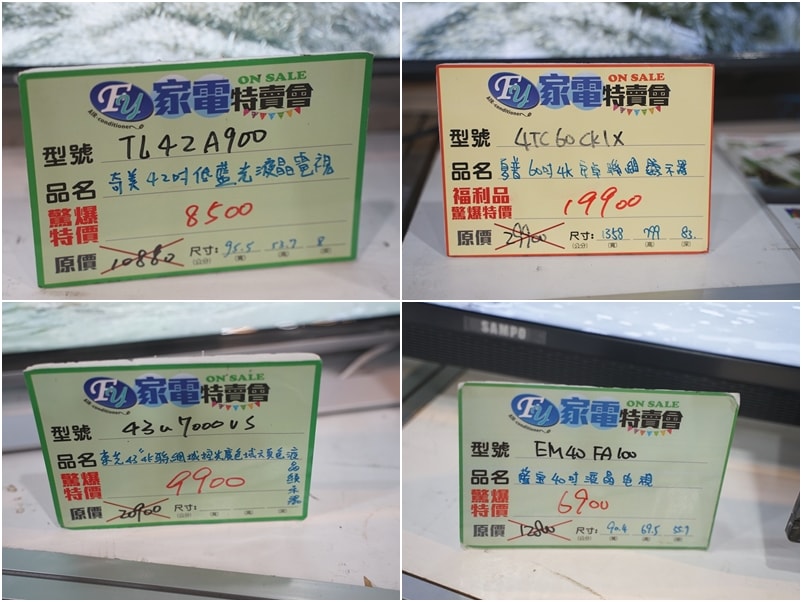 Fy 家電特賣會 ON SALE
Air-conditioner
型號 TL42A900
品名 奇美42吋低藍光液晶電視
驚爆特價 8500
原價 10880 尺寸: 95.5 8
(公分) (寬) (高) (深)
Fy 家電特賣會 ON SALE
Air-conditioner
型號 4TC60CK1X
品名 夏普60吋4K安卓聯網顯示器
福利品
驚爆特價 19900
原價 29900 尺寸: 1358 799 83
(公分) (寬) (高) (深)
Fy 家電特賣會 ON SALE
Air-conditioner
型號 43u7000VS
品名 東芝43"
驚爆特價 9900
原價 20900 尺寸:
(公分) (寬) (高) (深)
SAMPO
Fy 家電特賣會 ON SALE
Air-conditioner
型號 EM40FA100
品名 聲寶40吋液晶電視
驚爆特價 6900
原價 12800 尺寸: 90.4 69.5
(公分) (寬) (高) (深)